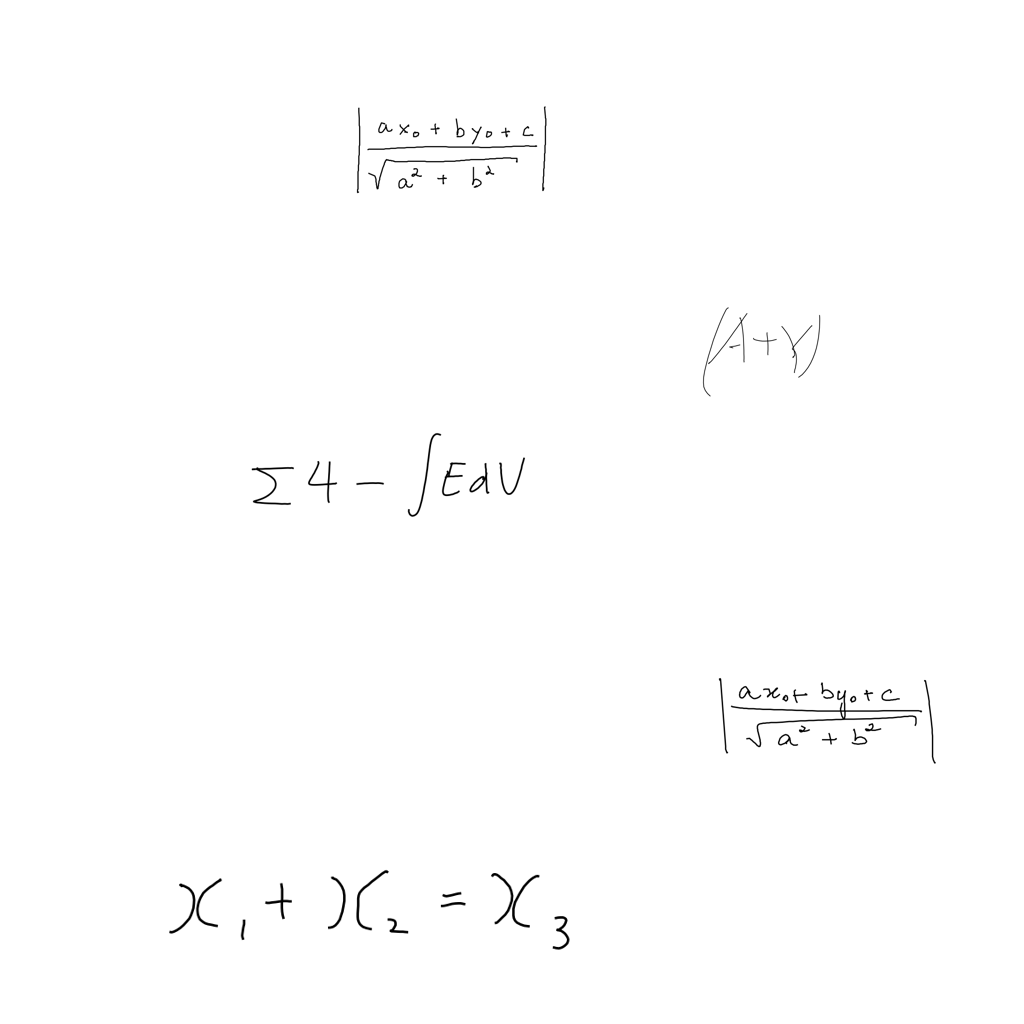 \left| \frac{ax_0 + by_0 + c}{\sqrt{a^2 + b^2}} \right|
(A+Y)
\sum 4 - \int E dV
\left| \frac{ax_0 + by_0 + c}{\sqrt{a^2 + b^2}} \right|
x_1 + x_2 = x_3